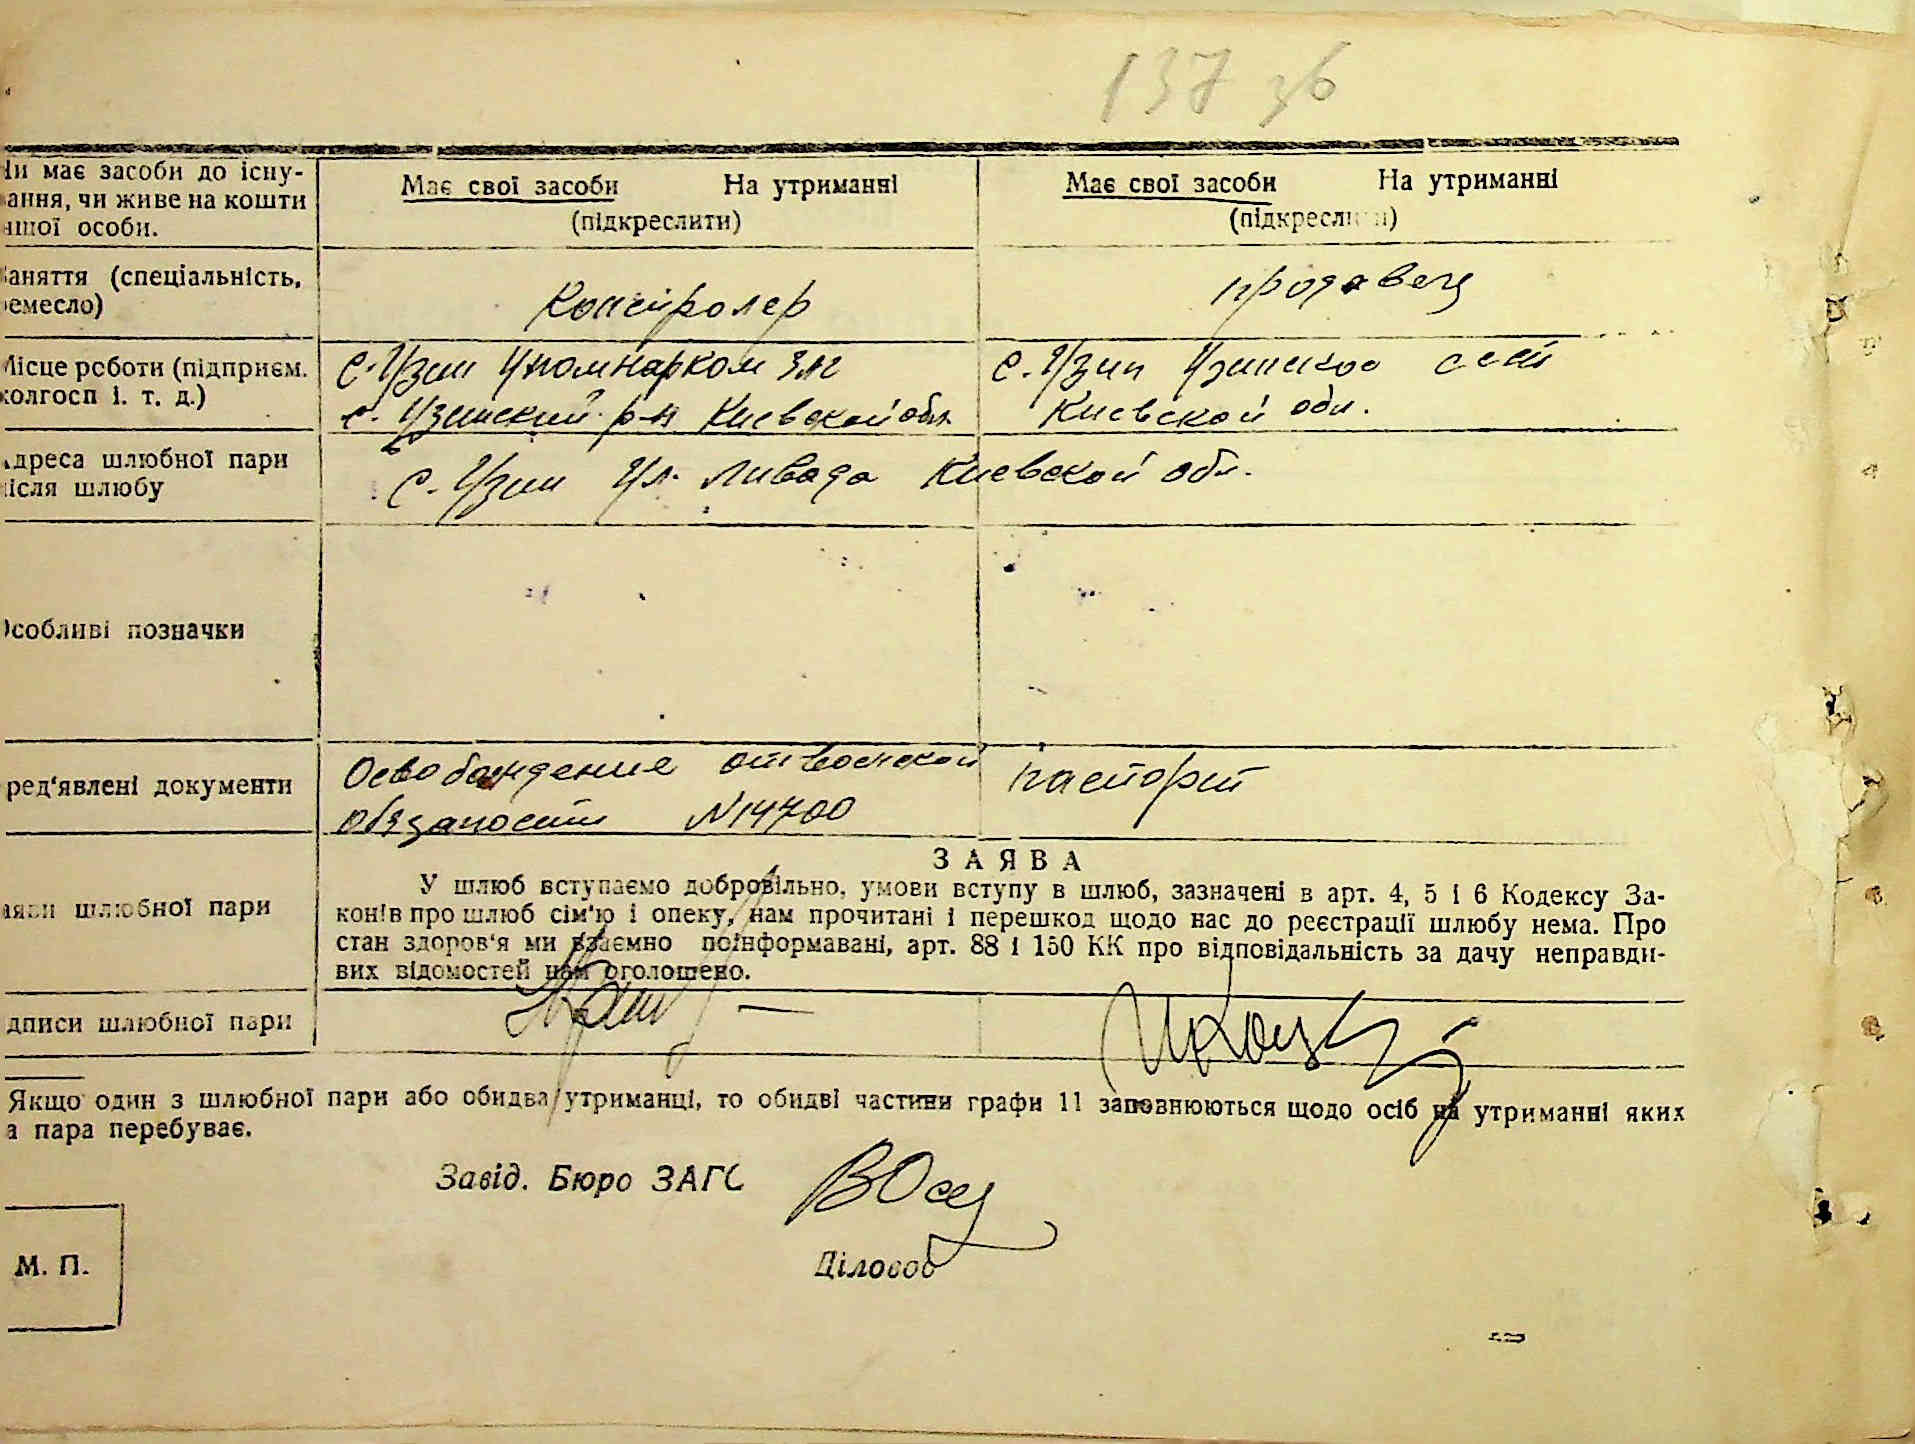 137 зв
Чи має засоби до існу-
вання, чи живе на кошти
іншої особи.
Має свої засоби На утриманні
(підкреслити)
Має свої засоби На утриманні
(підкреслити)
Заняття (спеціальність,
ремесло)
Контролер
продавец
Місце роботи (підприєм.
колгосп і. т. д.)
с. Узин Упомнаркомзаг
с. Узинский р-н Киевской обл.
с. Узин Узинское сет
Киевской обл.
Адреса шлюбної пари
після шлюбу
с. Узин Ул. Ливада Киевской обл.
Особливі позначки
Пред'явлені документи
Освобождение от воинской
обязаности N 14700
паспорт
Заяви шлюбної пари
ЗАЯВА
У шлюб вступаємо добровільно, умови вступу в шлюб, зазначені в арт. 4, 5 і 6 Кодексу За-
конів про шлюб сім'ю і опеку, нам прочитані і перешкод щодо нас до реєстрації шлюбу нема. Про
стан здоров'я ми взаємно поінформавані, арт. 88 і 150 КК про відповідальність за дачу неправди-
вих відомостей нам оголошено.
Підписи шлюбної пари
Якщо один з шлюбної пари або обидва утриманці, то обидві частини графи 11 заповнюються щодо осіб на утриманні яких
а пара перебуває.
Завід. Бюро ЗАГС
Діловод
М. П.